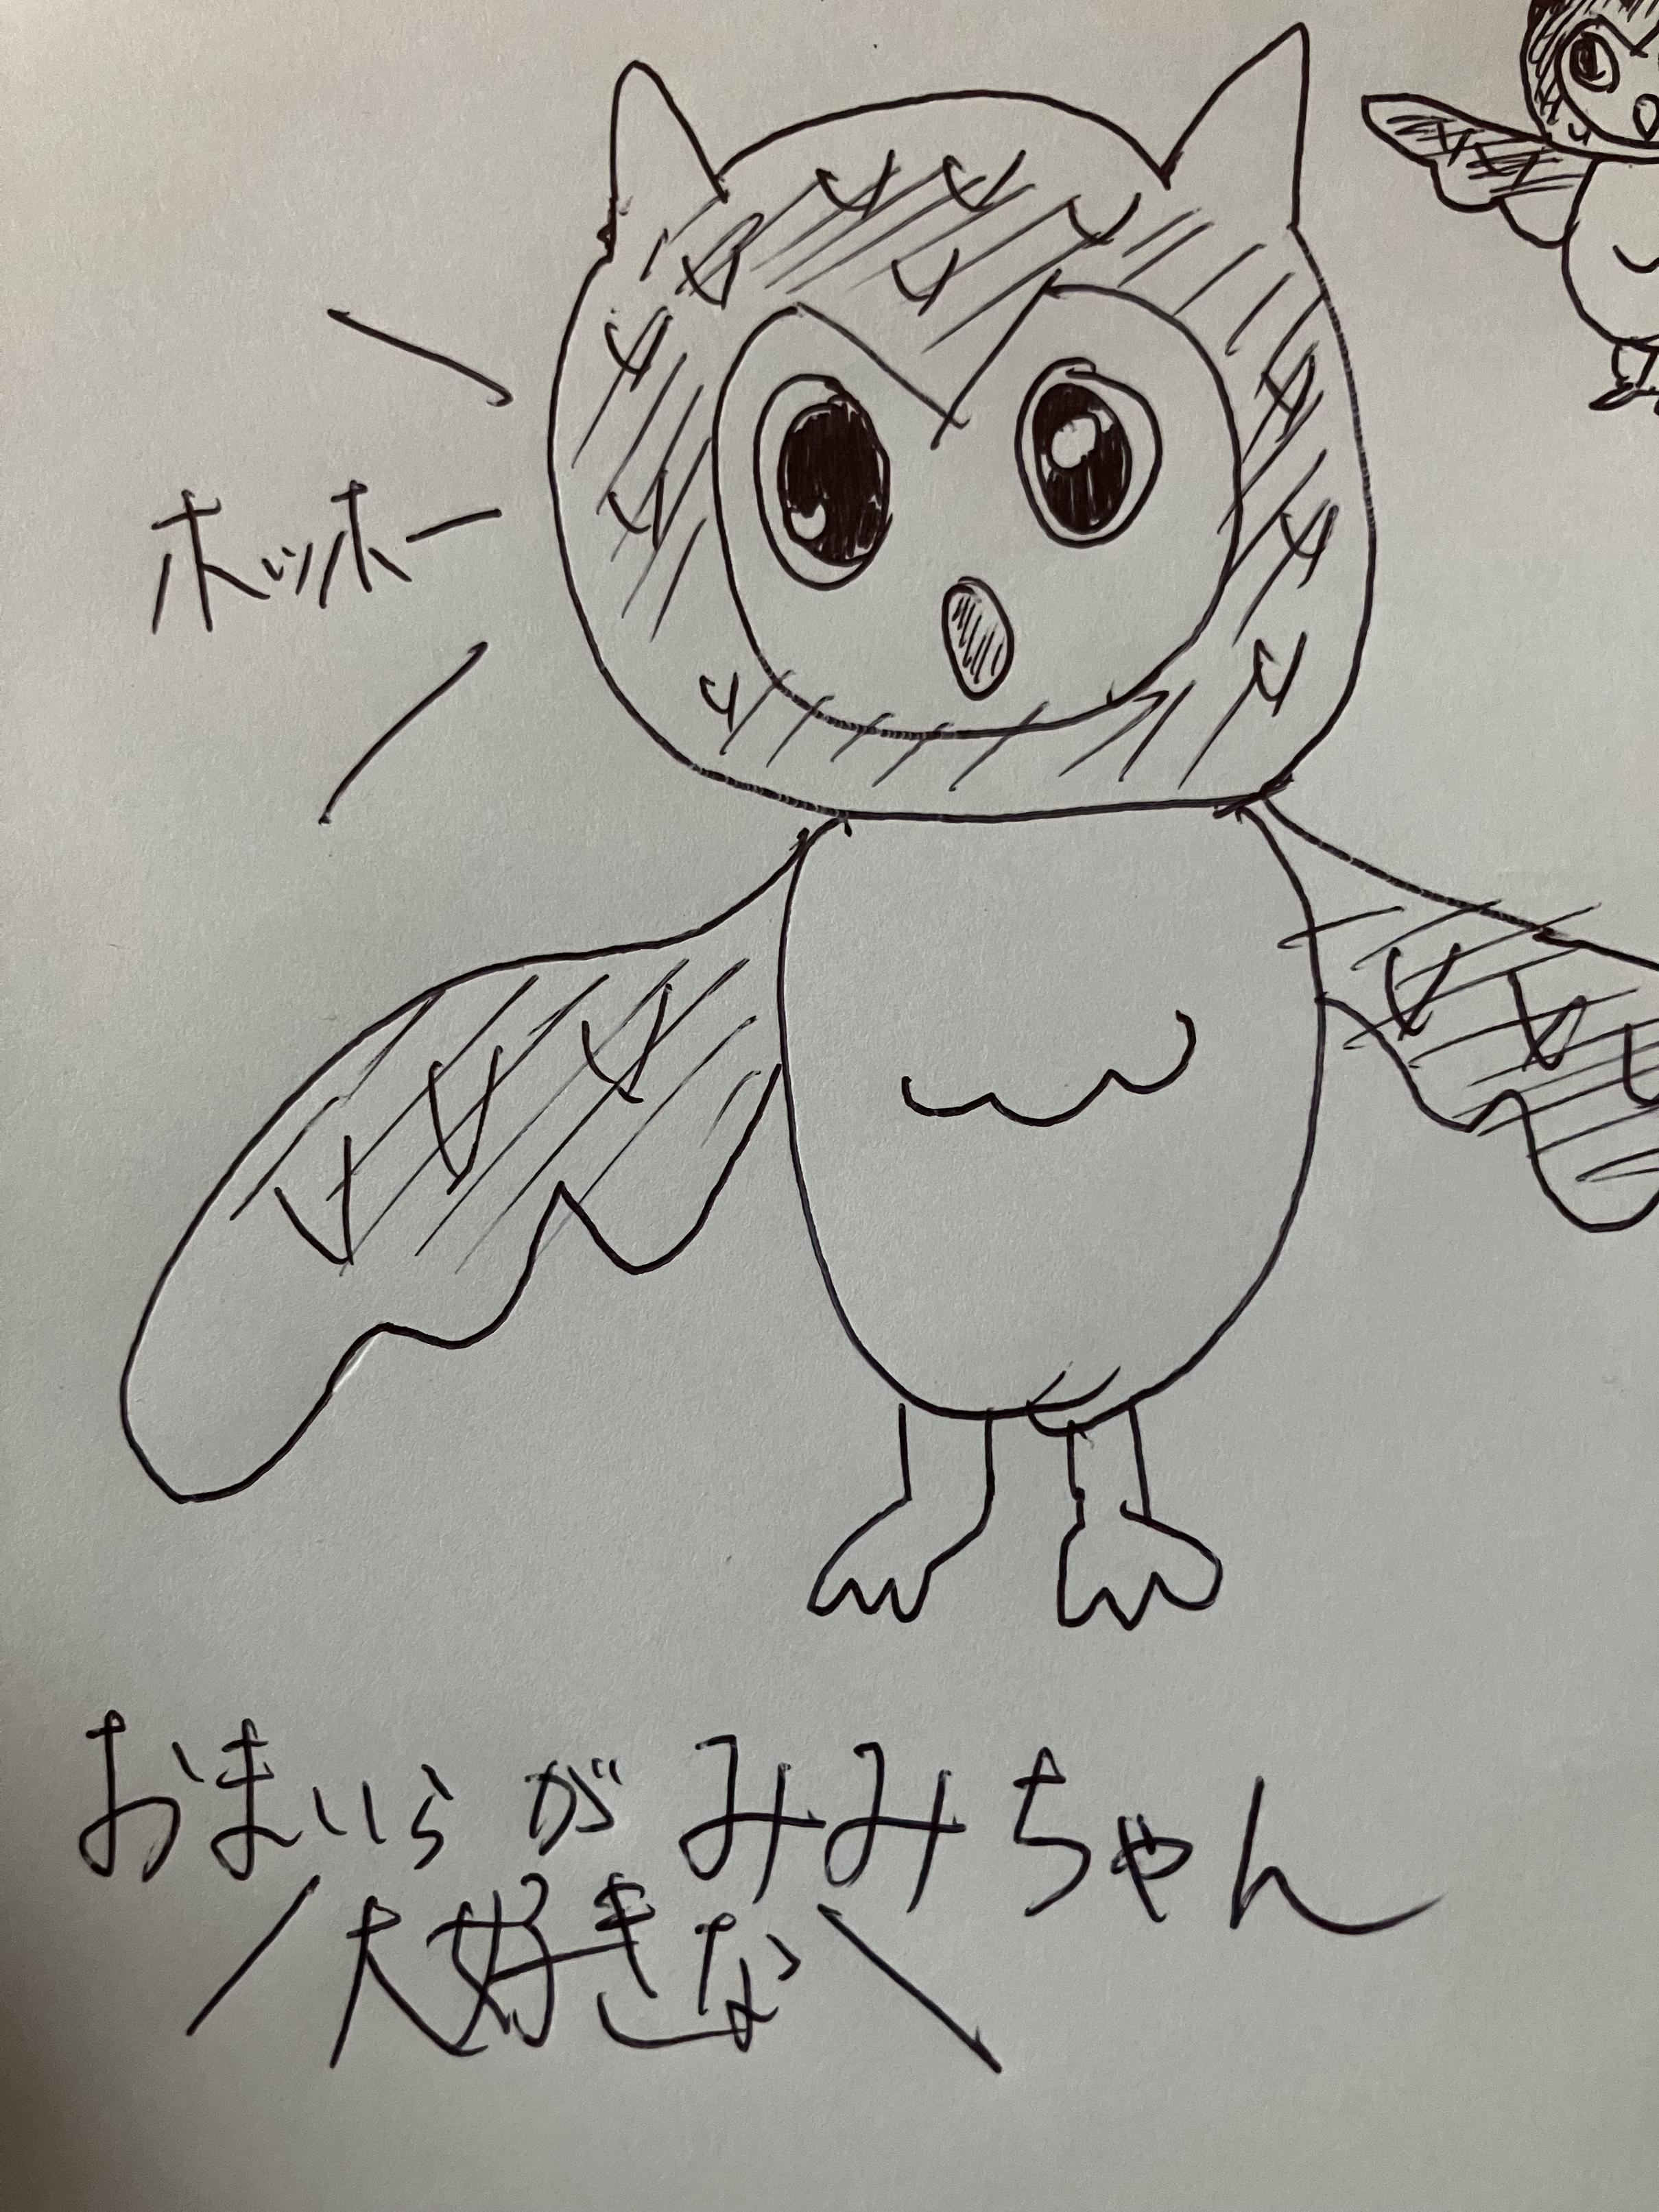 ホッホー
おまいらがみみちゃん
大好きな